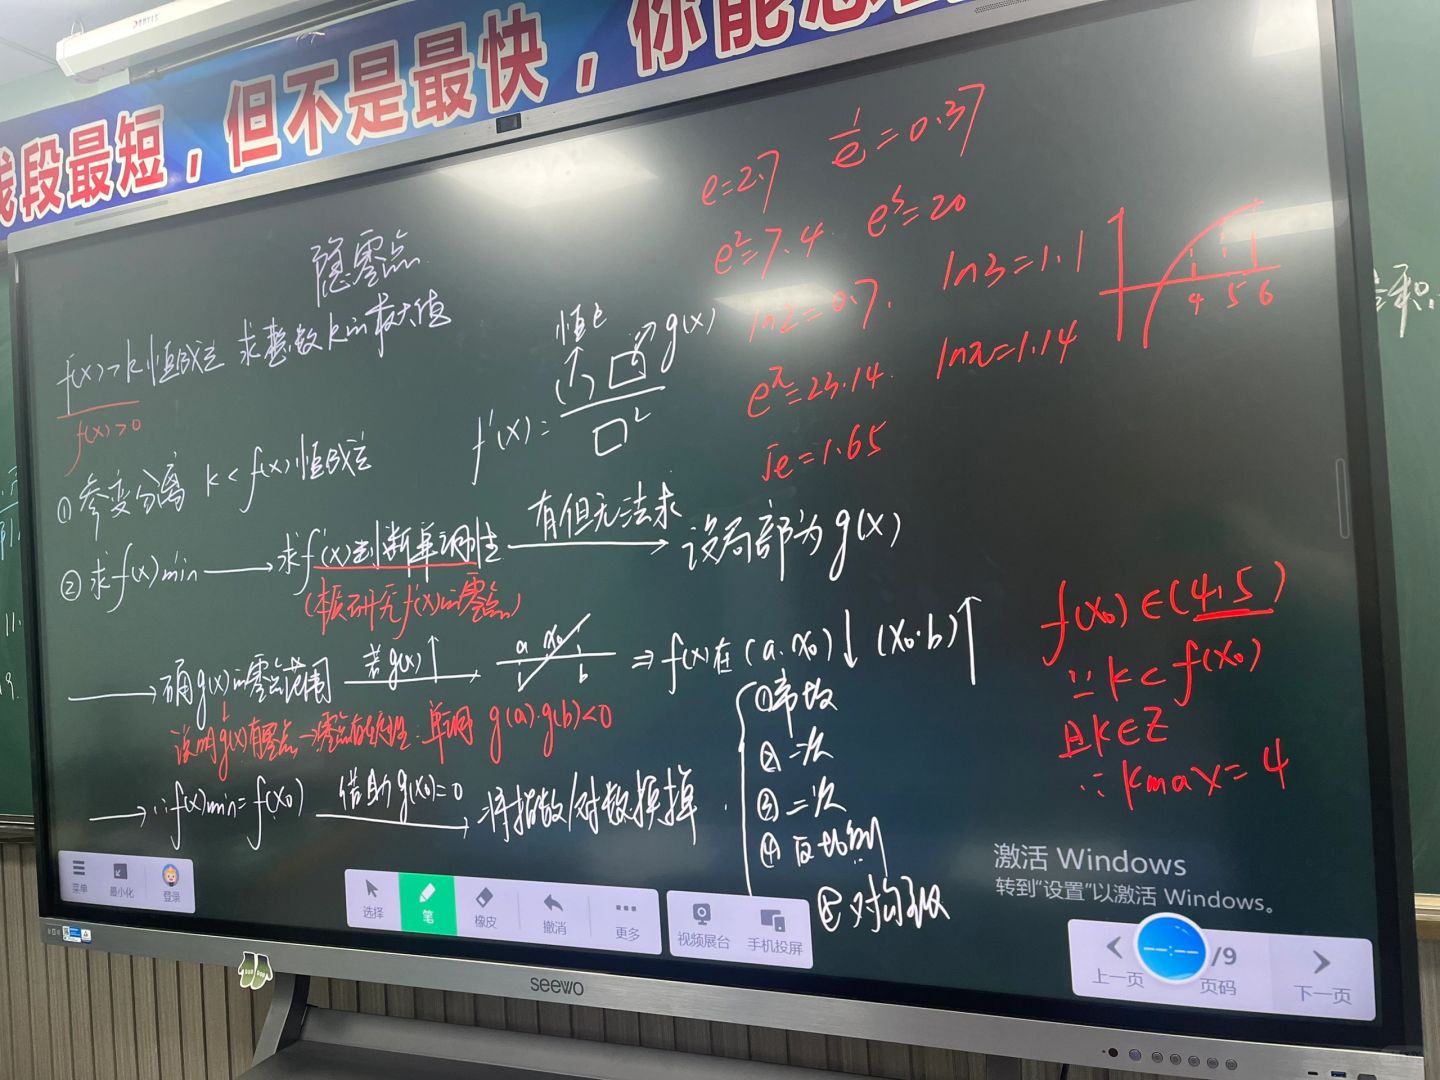 线段最短，但不是最快，你能
隐零点
f(x)>k恒成立 求整数k的最大值
f(x)>0
f'(x)=
恒正
( )□→g(x)
□²
①参变分离 k<f(x)恒成立
②求f(x)min→求f'(x)判断单调性
有但无法求
设局部为g(x)
(本质研究f'(x)的零点)
→确g(x)的零点范围 若g(x)↑
a x₀ b
⇒f(x)在(a.x₀)↓(x₀.b)↑
说明g(x)有零点→零点存在性.单调 g(a).g(b)<0
→∵f(x)min=f(x₀) 借助g(x₀)=0 将指数/对数换掉
②一次
③二次
④反比例
⑤对勾
e=2.7 1/e=0.37
e²=7.4 e³=20
ln2=0.7. ln3=1.1
e^π=23.14. lnπ=1.14
√e=1.65
4 5 6
f(x₀)∈(4,5)
∵k<f(x₀)
且k∈Z
∴kmax=4
激活 Windows
转到"设置"以激活 Windows。
菜单 最小化 登录
选择 笔 橡皮 撤消 更多
视频展台 手机投屏
上一页 /9 页码 下一页
seewo